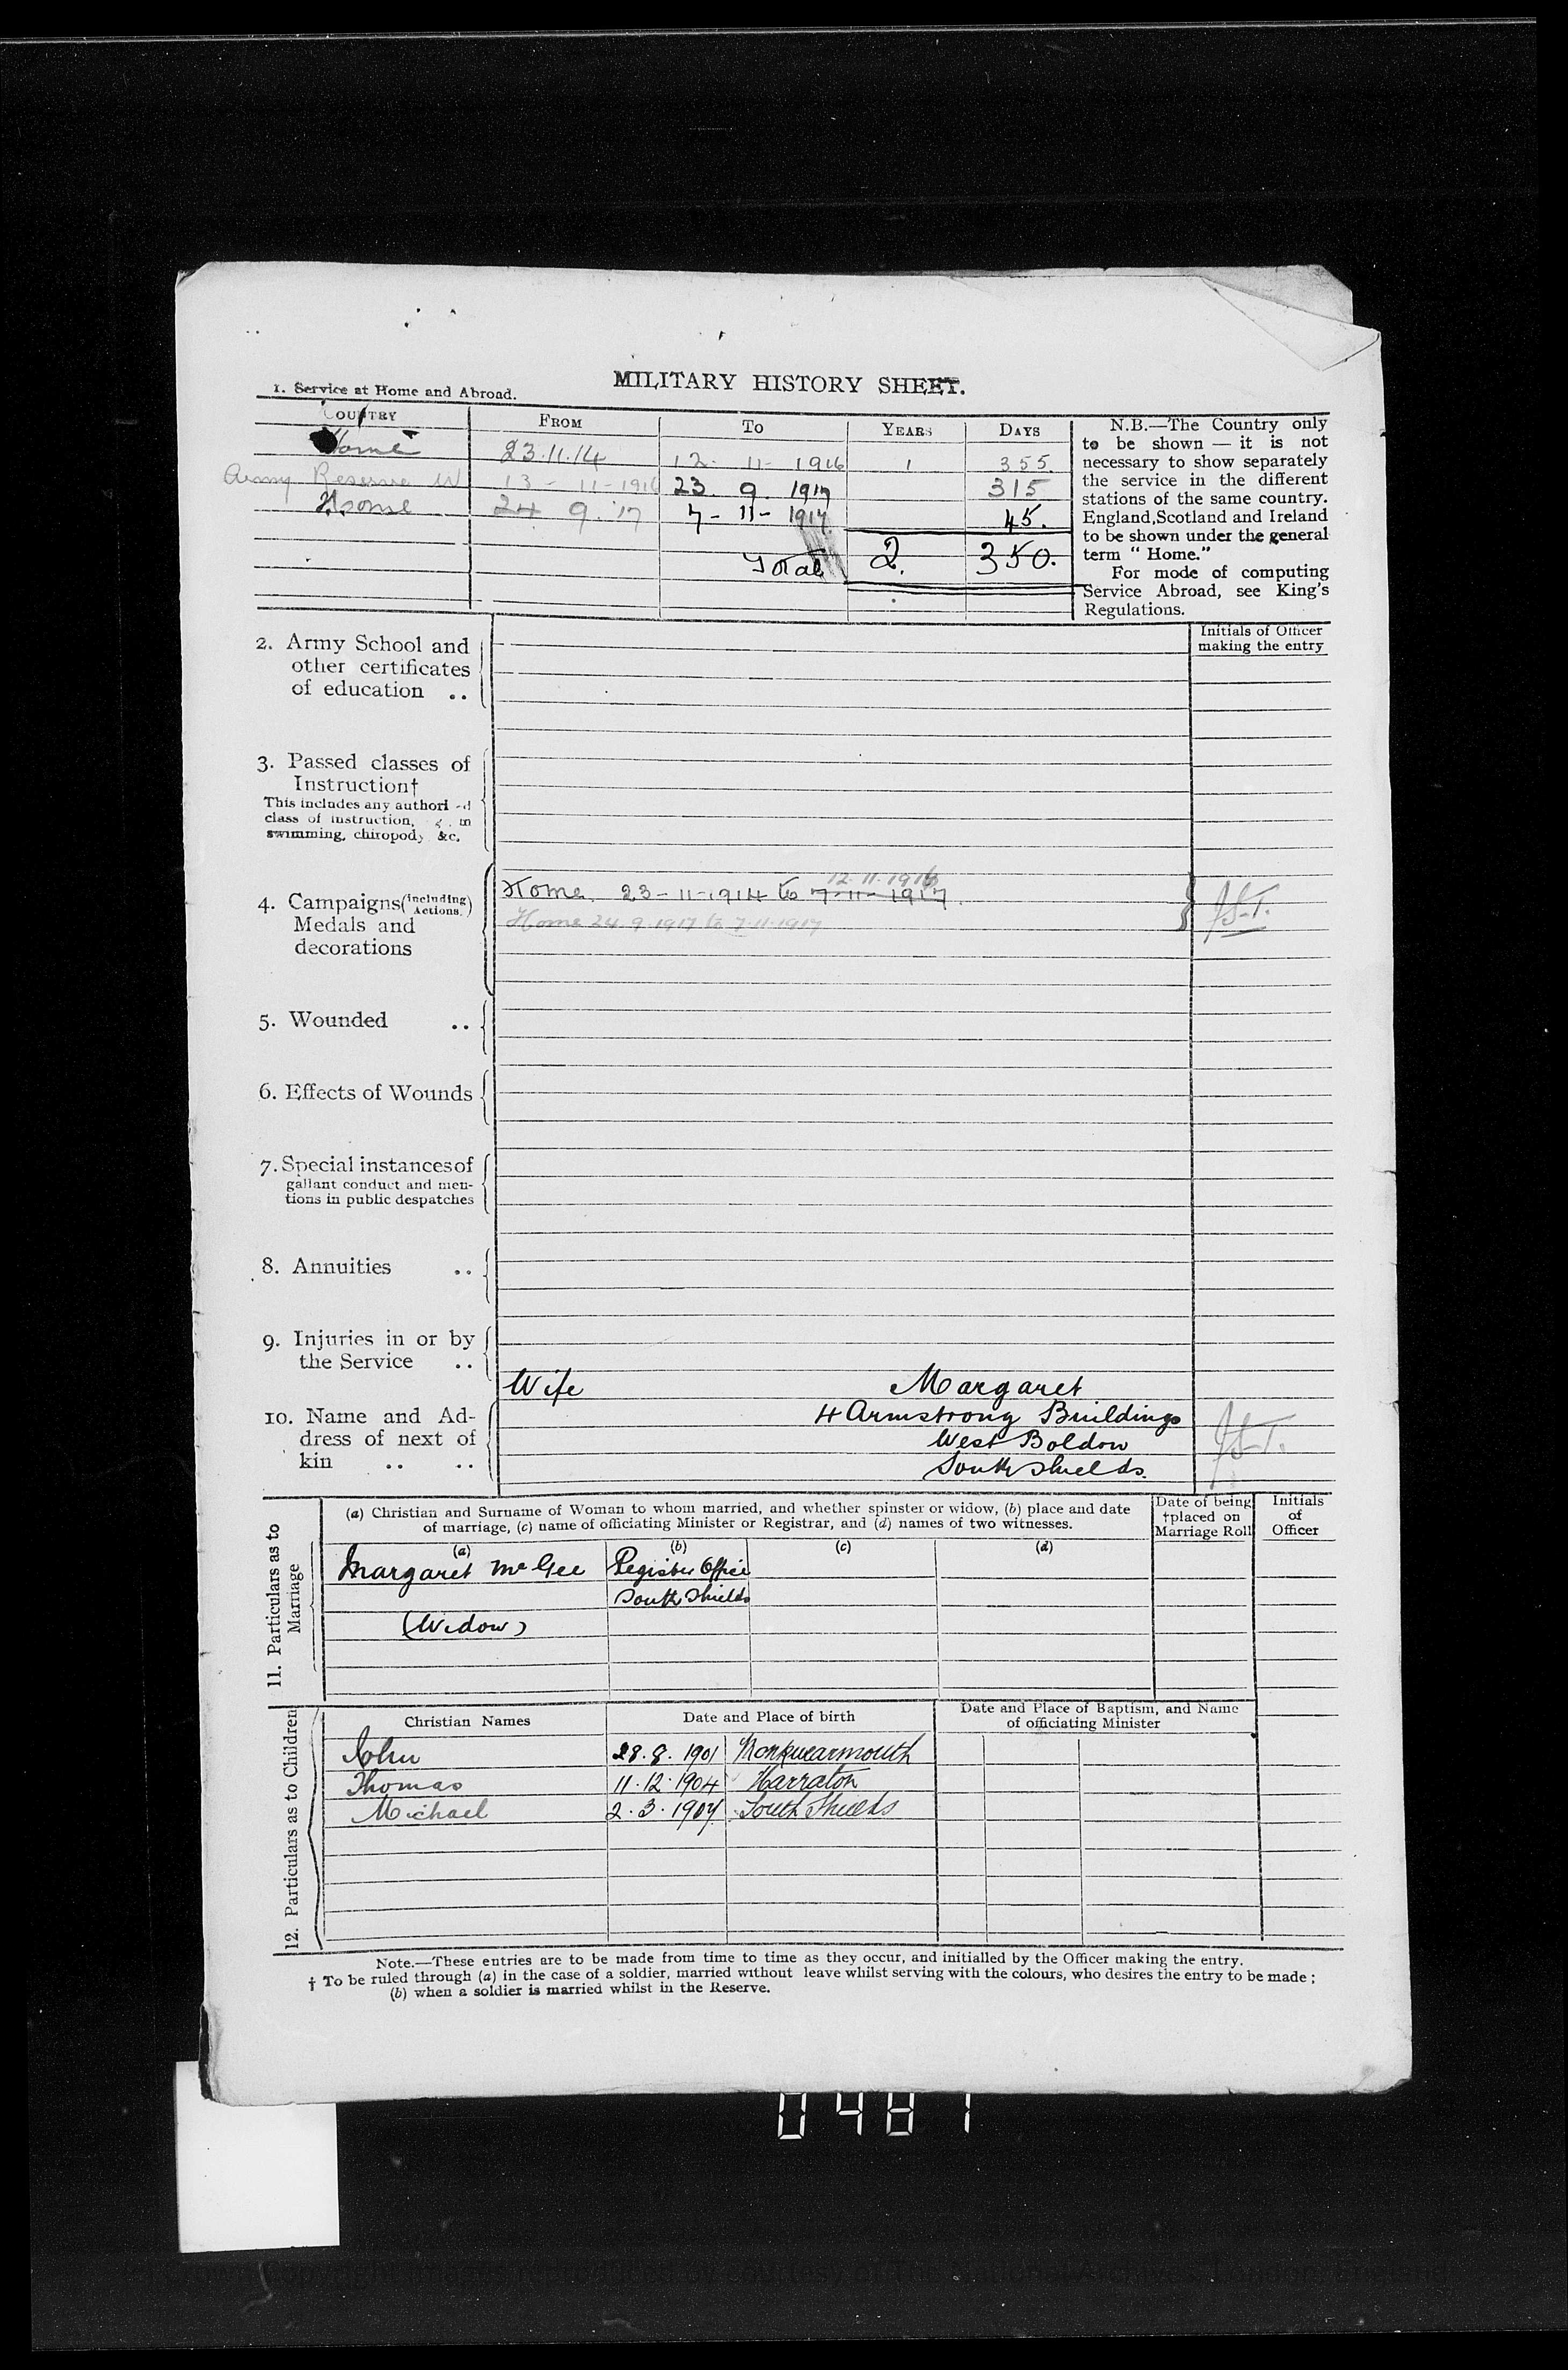 MILITARY HISTORY SHEET.
1. Service at Home and Abroad.
COUNTRY FROM TO YEARS DAYS
Home 23.11.14 12 - 11 - 1916 1 355.
Army Reserve W 13 - 11 - 1916 23. 9. 1917 315
Home 24 9. 17 7 - 11 - 1917 45.
Total 2. 350.
N.B.—The Country only
to be shown — it is not
necessary to show separately
the service in the different
stations of the same country.
England, Scotland and Ireland
to be shown under the general
term " Home."
For mode of computing
Service Abroad, see King's
Regulations.
Initials of Officer
making the entry
2. Army School and
other certificates
of education ..
3. Passed classes of
Instruction†
This includes any authori d
class of instruction, g. in
swimming, chiropody &c.
4. Campaigns (including Actions,)
Medals and
decorations
12.11.1916
Home. 23-11-1914 to 7-11-1917.
Home 24.9.1917 to 7.11.1917
J.S.T.
5. Wounded ..
6. Effects of Wounds
7. Special instances of
gallant conduct and men-
tions in public despatches
8. Annuities ..
9. Injuries in or by
the Service ..
10. Name and Ad-
dress of next of
kin .. ..
Wife Margaret
4 Armstrong Buildings
West Boldon
South Shields.
J.S.T.
11. Particulars as to
Marriage
(a) Christian and Surname of Woman to whom married, and whether spinster or widow, (b) place and date
of marriage, (c) name of officiating Minister or Registrar, and (d) names of two witnesses.
Date of being
†placed on
Marriage Roll
Initials
of
Officer
(a) (b) (c) (d)
Margaret McGee Register Office
South Shields
(Widow)
12. Particulars as to Children
Christian Names Date and Place of birth Date and Place of Baptism, and Name
of officiating Minister
John 28.8.1901 Monkwearmouth
Thomas 11.12.1904 Harraton
Michael 2.3.1907. South Shields
Note.—These entries are to be made from time to time as they occur, and initialled by the Officer making the entry.
† To be ruled through (a) in the case of a soldier, married without leave whilst serving with the colours, who desires the entry to be made ;
(b) when a soldier is married whilst in the Reserve.
0481
Crown Copyright Images reproduced by courtesy of The National Archives, London, England